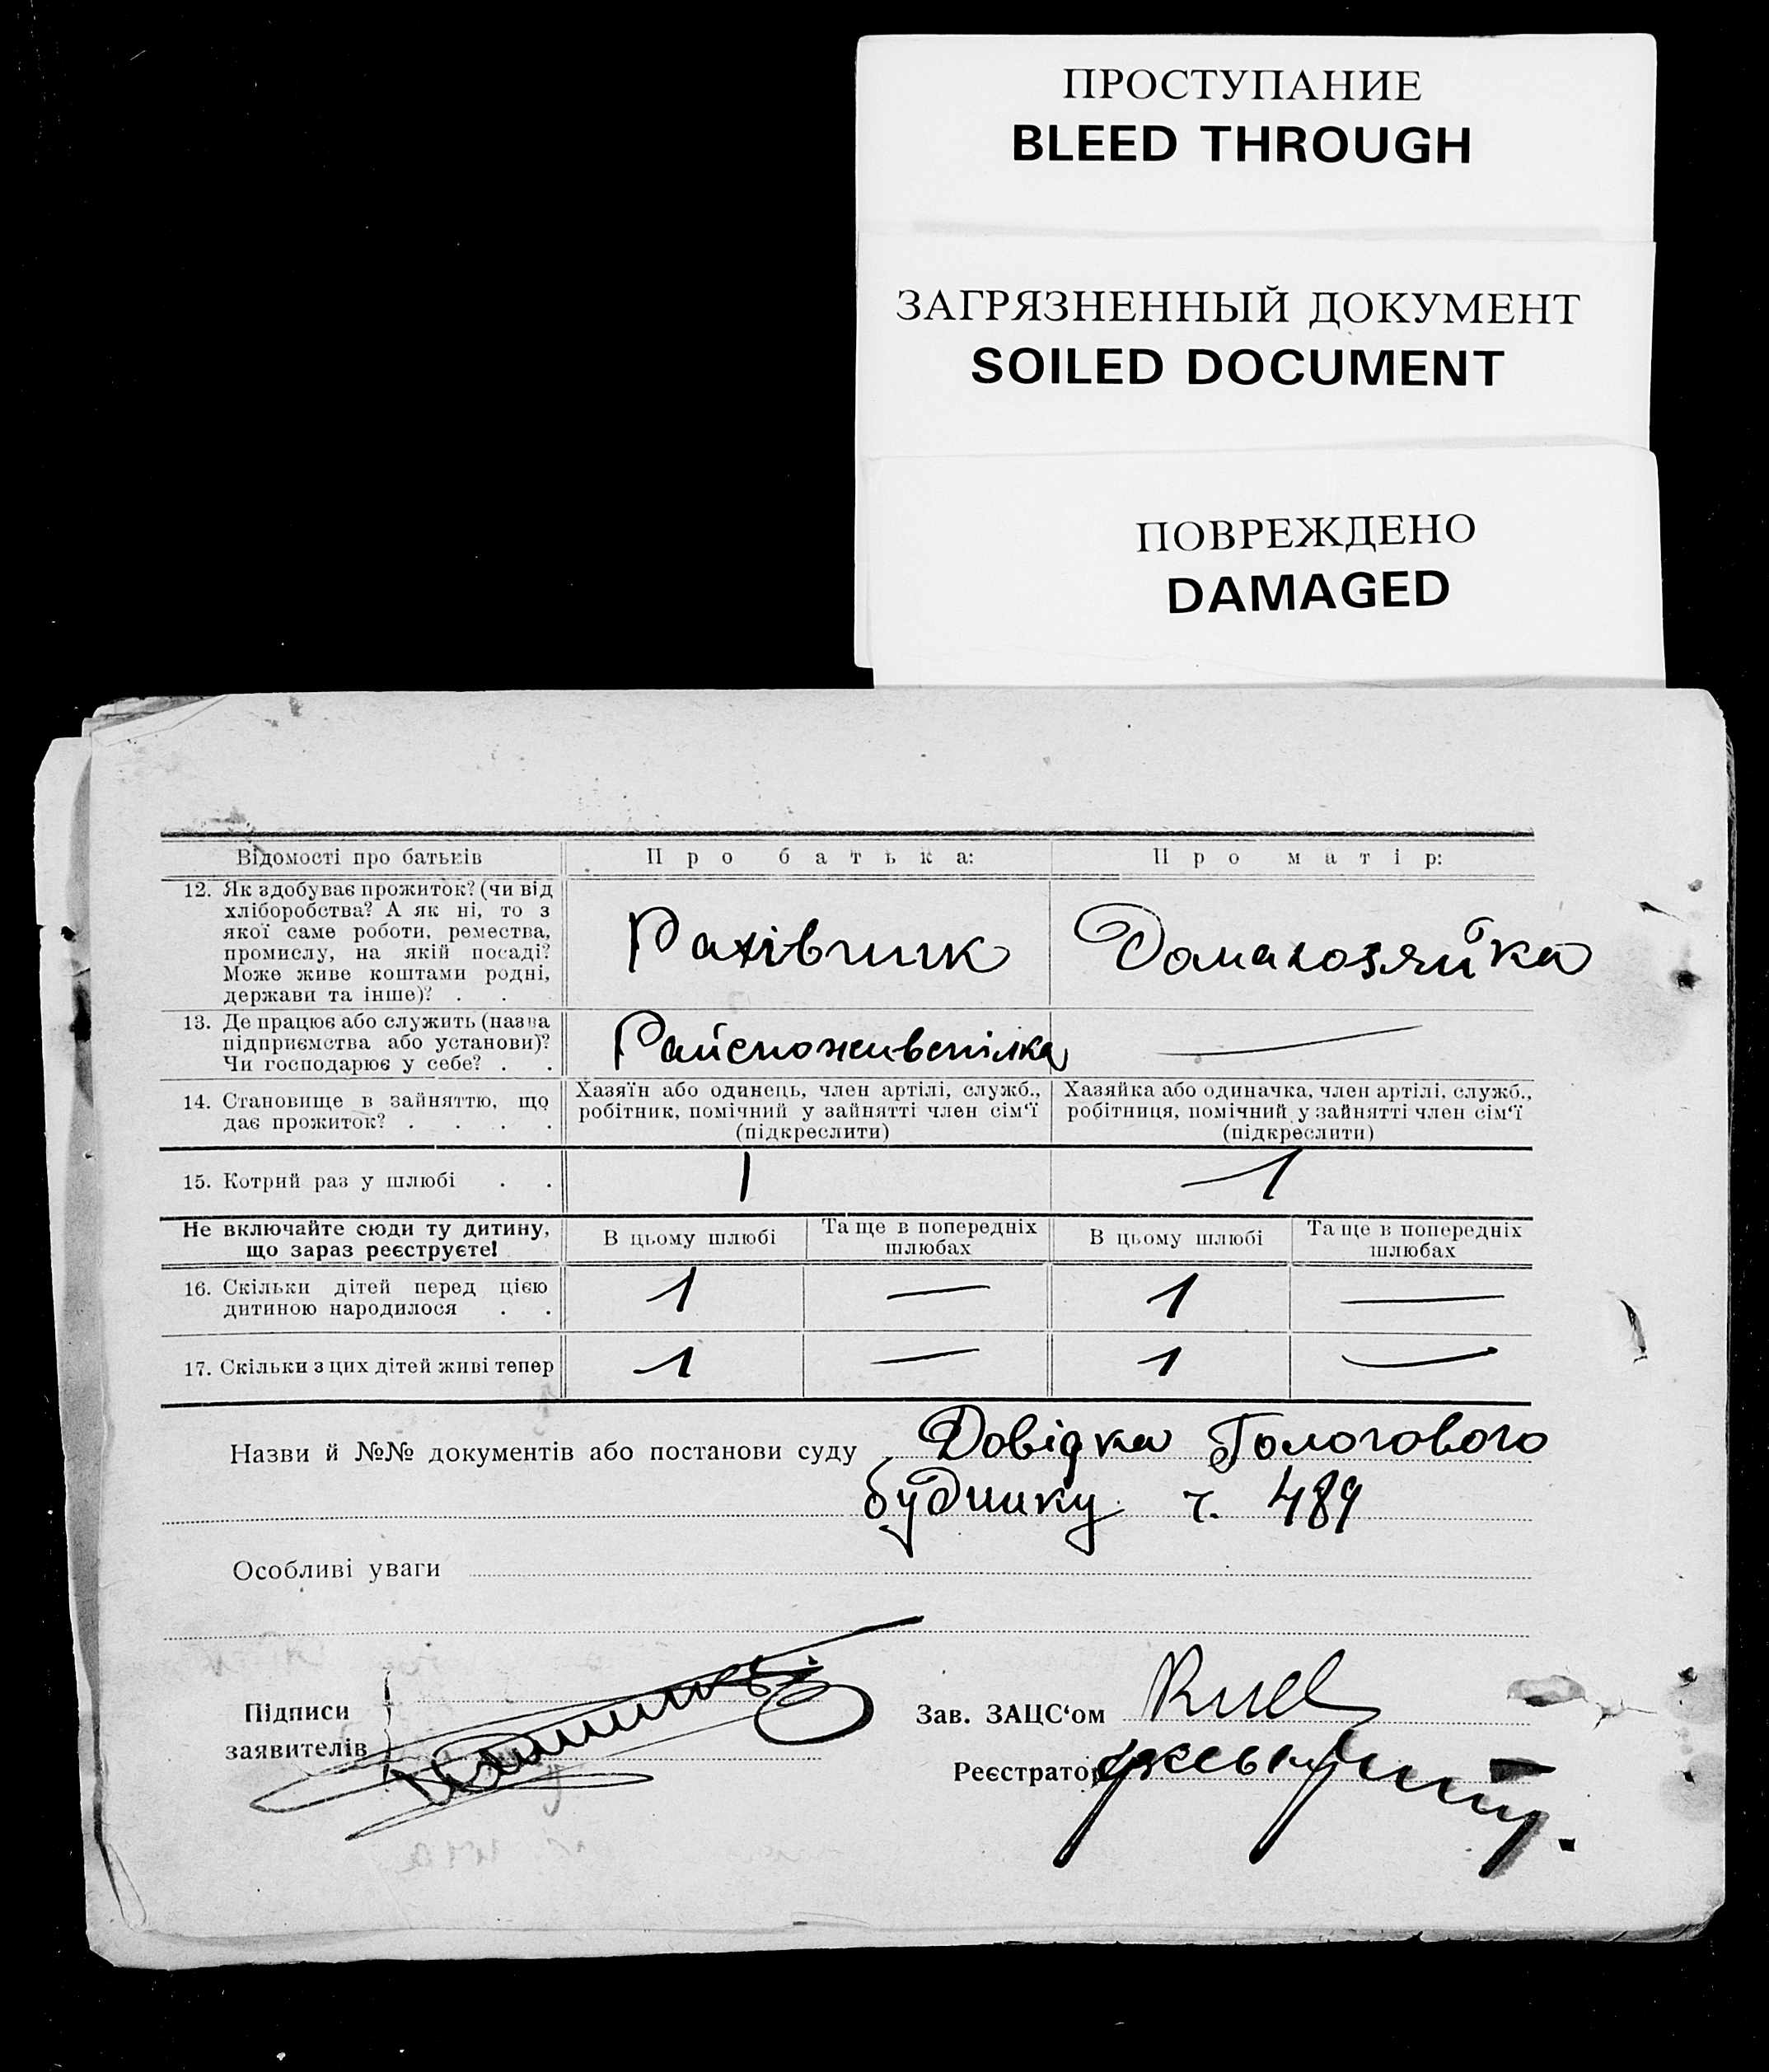 ПРОСТУПАНИЕ
BLEED THROUGH
ЗАГРЯЗНЕННЫЙ ДОКУМЕНТ
SOILED DOCUMENT
ПОВРЕЖДЕНО
DAMAGED
Відомості про батьків
Про батька:
Про матір:
12. Як здобуває прожиток? (чи від
хліборобства? А як ні, то з
якої саме роботи, ремества,
промислу, на якій посаді?
Може живе коштами родні,
держави та інше)? . .
Рахівник
Домахозяйка
13. Де працює або служить (назва
підприємства або установи)?
Чи господарює у себе? . .
Райспоживспілка
—
14. Становище в зайняттю, що
дає прожиток? . . . .
Хазяїн або одинець, член артілі, служб.,
робітник, помічний у зайнятті член сім‘ї
(підкреслити)
Хазяйка або одиначка, член артілі, служб.,
робітниця, помічний у зайнятті член сім‘ї
(підкреслити)
15. Котрий раз у шлюбі . .
1
1
Не включайте сюди ту дитину,
що зараз реєструєте!
В цьому шлюбі
Та ще в попередніх
шлюбах
В цьому шлюбі
Та ще в попередніх
шлюбах
16. Скільки дітей перед цією
дитиною народилося . .
1
—
1
—
17. Скільки з цих дітей живі тепер
1
—
1
—
Назви й №№ документів або постанови суду Довідка Пологового
будинку ч. 489
Особливі уваги
Підписи
заявителів
Зав. ЗАЦС‘ом
Реєстратор